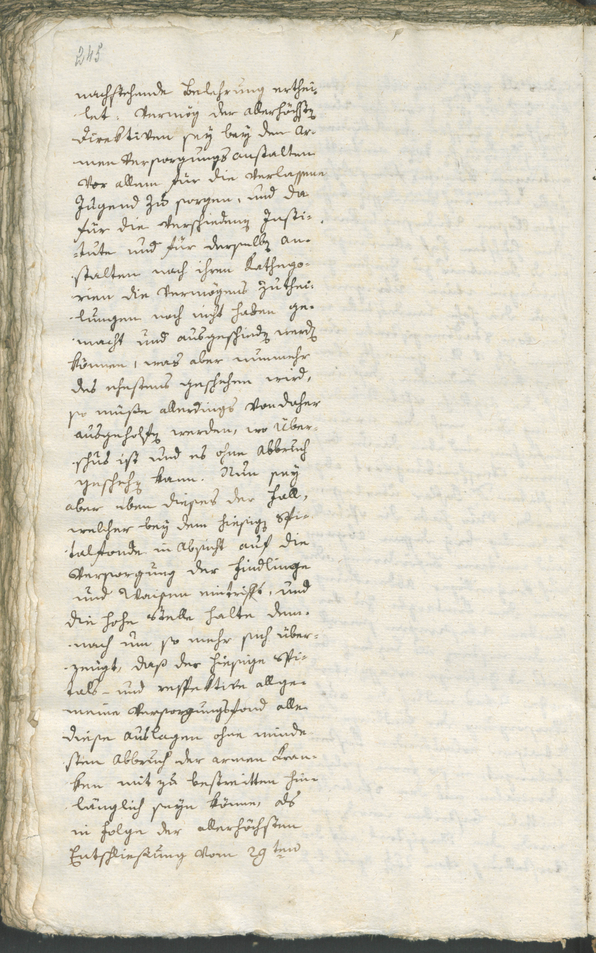 245
nachstehende Belehrung erthei-
let. Vermög der allerhöchsten
Direktiven sey bey den Ar-
men Versorgungs anstalten
vor allem für die verlassene
Jugend zu sorgen, und da
für die verschiedene Insti-
tute und für derselben An-
stalten nach ihren Kathego-
rien die Vermögens Zuthei-
lungen noch nicht haben ge-
macht und ausgeschieden werden
können, was aber nunmehr
des ehestens geschehen wird,
so müßte allerdings von daher
ausgeholfen werden, wo Über-
schus ist und es ohne Abbruch
geschehen kann. Nun sey
aber eben dieses der Fall,
welcher bey dem hiesigen Spi-
talfonde in Absicht auf die
Versorgung der Findlinge
und Waisen eintrifft, und
die hohe Stelle halte dem-
nach um so mehr sich über-
zeugt, daß der hiesige Spi-
tals- und respektive allge-
meine Versorgungsfond alle
diese Auslagen ohne minde-
sten Abbruch der armen Kran-
ken mit zu bestreitten hin-
länglich seyn könne, als
in Folge der allerhöchsten
Entschliessung vom 29ten